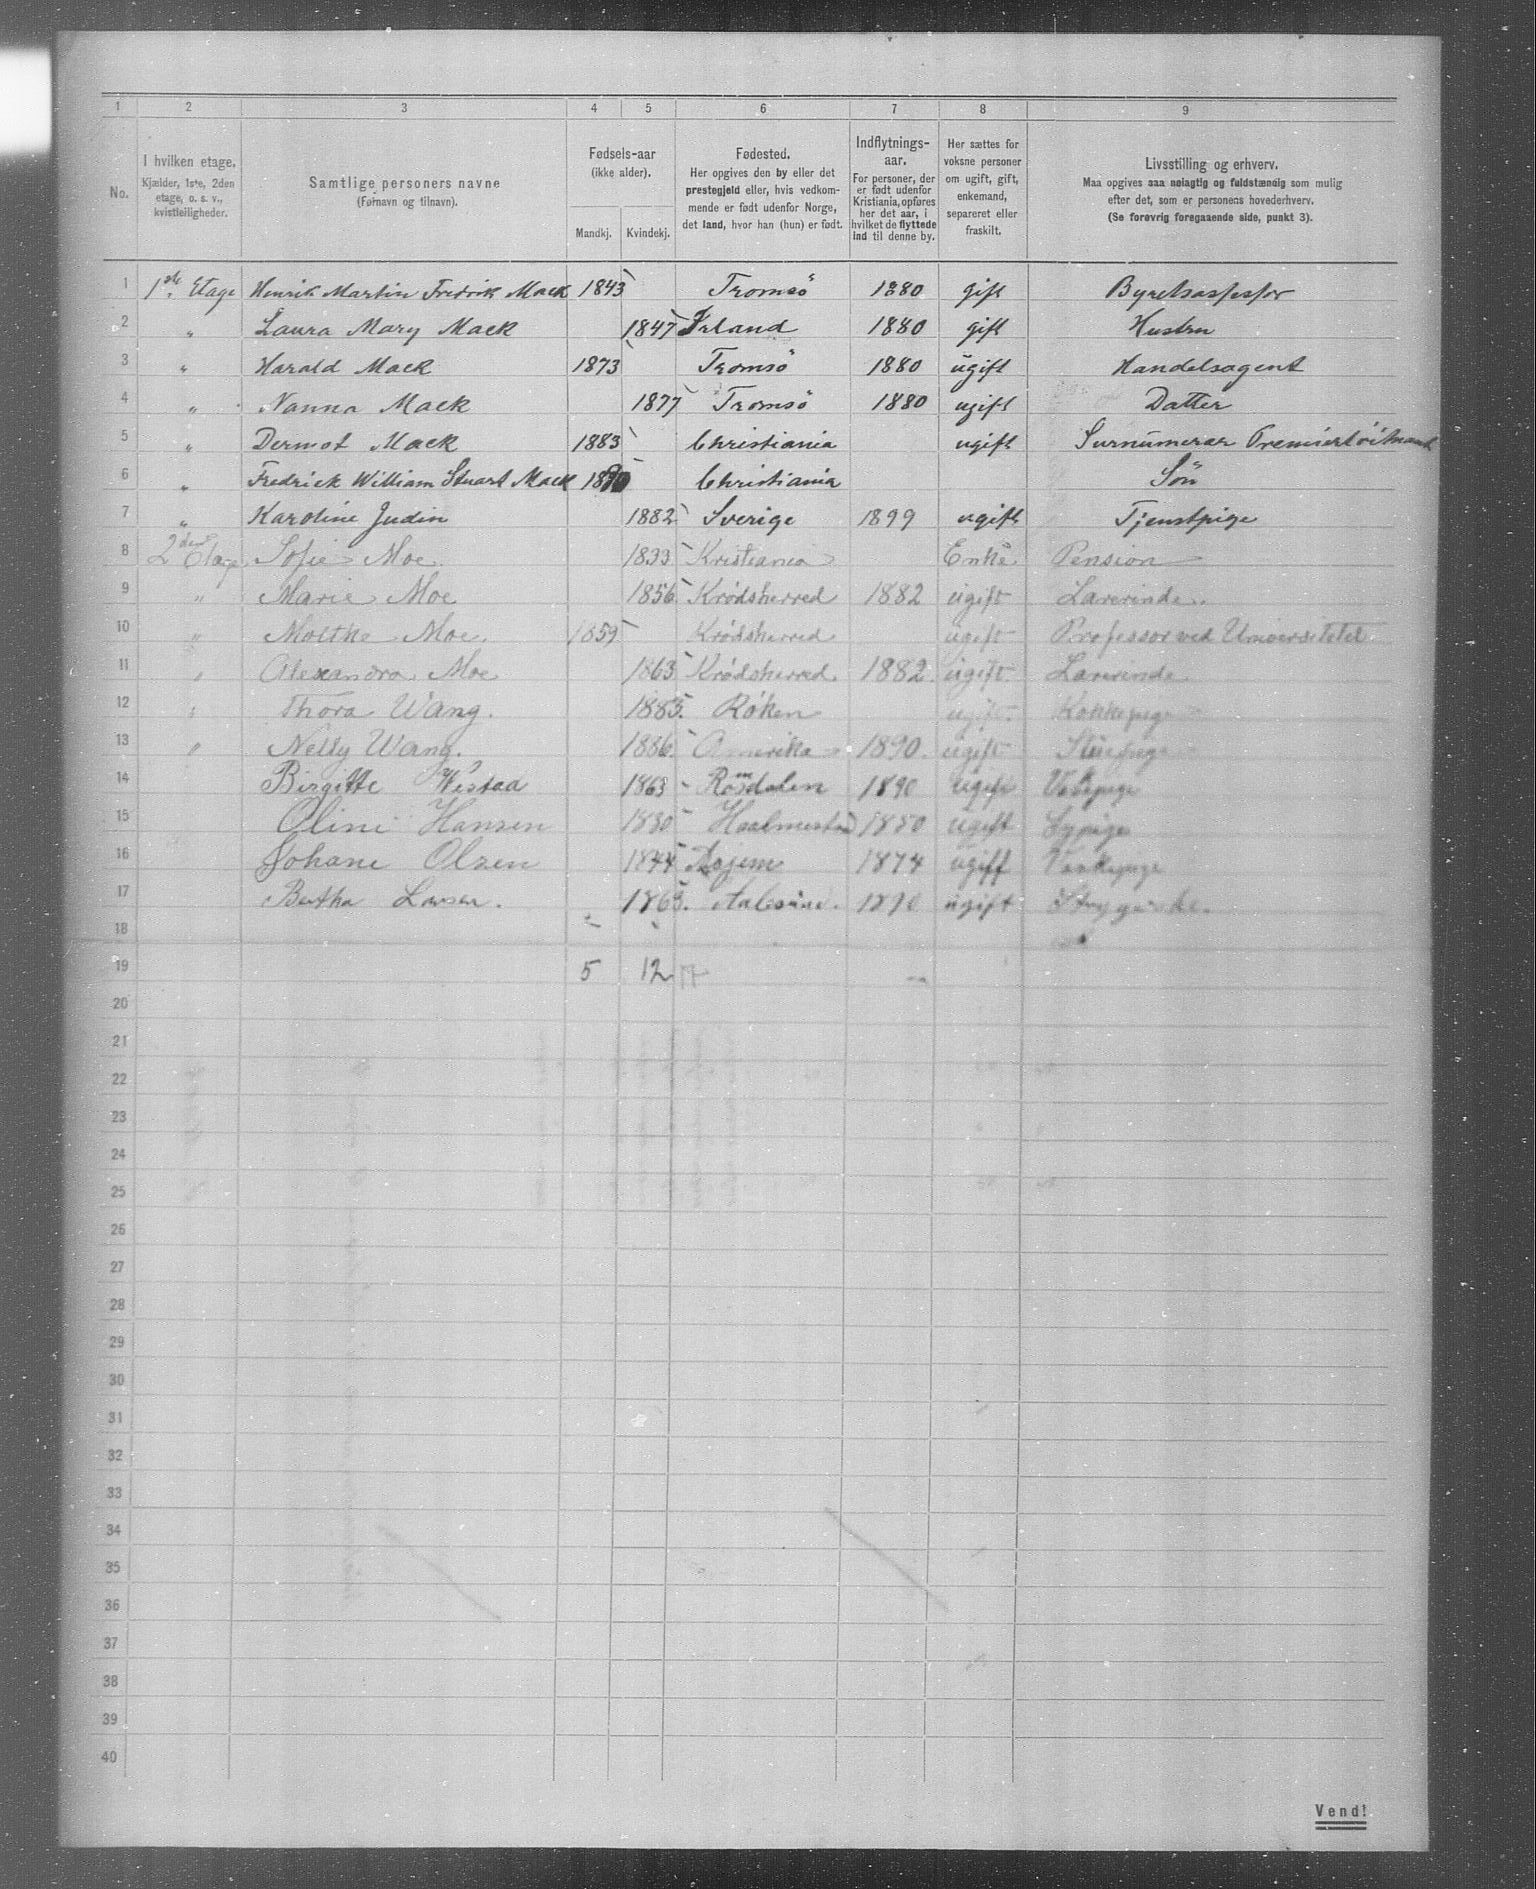 1 2 3 4 5 6 7 8 9
No.
I hvilken etage.
Kjælder, 1ste, 2den
etage, o. s. v.,
kvistleiligheder.
Samtlige personers navne
(Fornavn og tilnavn).
Fødsels-aar
(ikke alder).
Mandkj. Kvindekj.
Fødested.
Her opgives den by eller det
prestegjeld eller, hvis vedkom-
mende er født udenfor Norge,
det land, hvor han (hun) er født.
Indflytnings-
aar.
For personer, der
er født udenfor
Kristiania, opføres
her det aar, i
hvilket de flyttede
ind til denne by.
Her sættes for
voksne personer
om ugift, gift,
enkemand,
separeret eller
fraskilt.
Livsstilling og erhverv.
Maa opgives saa nøiagtig og fuldstændig som mulig
efter det, som er personens hovederhverv.
(Se forøvrig foregaaende side, punkt 3).
1 1ste Etage Henrik Martin Fredrik Mack 1843 Tromsö 1880 gift Byretsassessor
2 " Laura Mary Mack 1847 Irland 1880 gift Hustru
3 " Harald Mack 1873 Tromsö 1880 ugift Handelsagent
4 " Nanna Mack 1877 Tromsö 1880 ugift Datter
5 " Dermot Mack 1883 Christiania ugift Surnumerær Premierlöitnant
6 " Fredrick William Stuart Mack Christiania Sön
7 " Karoline Judin 1882 Sverige 1899 ugift Tjenstpige
8 2den Etage Sofie Moe. 1833 Kristiania Enke Pension
9 " Marie Moe 1856 Krødsherred 1882 ugift Lærerinde.
10 " Moltke Moe. 1859 Krødsherred ugift Professor ved Universitetet.
11 " Alexandra Moe 1863 Krødsherred 1882 ugift Lærerinde
12 " Thora Wang. Røken ugift. Kokkepige
13 " Nelly Wang. 1886 Amerika 1890. ugift Stuepige
14 Birgitte Wistad 1863 Romsdalen 1890 ugift
15 Oline Hansen 1880 ugift Sypige
16 Johane Olsen 1844 1874 ugift
17 Bertha Larsen. 1863. Aalesund. ugift Strygerske.
18
19 5 12 17
20
21
22
23
24
25
26
27
28
29
30
31
32
33
34
35
36
37
38
39
40
Vend!